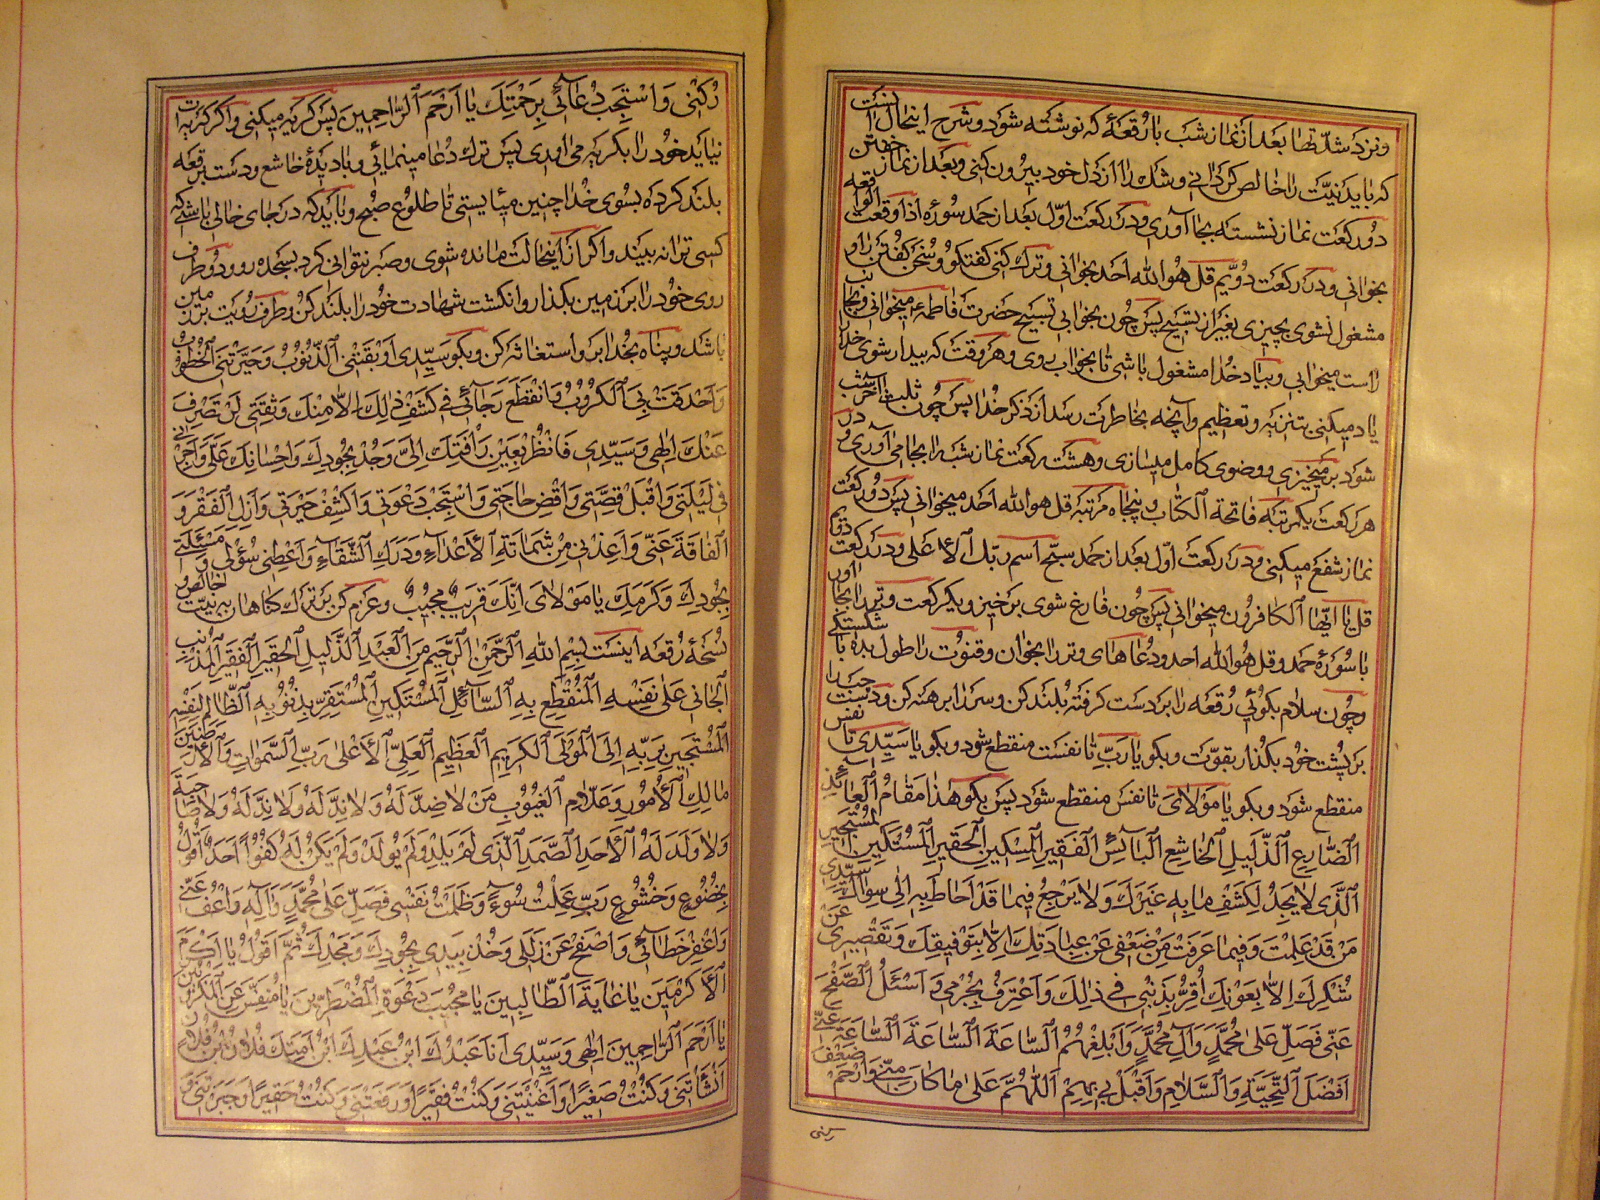 ونزد شدّتها بعد از نماز شب با رقعهٔ که نوشته شود و شرح اینحال آنست
که باید نیّت را خالص کردانی وشک را از دل خود بیرون کنی وبعد از نماز خفتن
دو رکعت نماز نشسته بجا آوری ودر رکعت اوّل بعد از حمد سوره اذا وقعت الواقعه
بخوانی ودر رکعت دویّم قل هو الله احد بخوانی وترک کنی کفتکو وسخن کفتن را و
مشغول نشوی بچیزی بغیر از تسبیح پس چون بخوابی تسبیح حضرت فاطمه میخوانی وبجانب
راست میخوابی وبیاد خدا مشغول باشی تا بخواب روی وهر وقت که بیدار شوی خدا را
یاد میکنی بتنزیه وتعظیم وآنچه بخاطرت رسد از ذکر خدا پس چون ثلث آخر شب
شود برمیخیزی ووضوی کامل میسازی وهشت رکعت نماز شب را بجا می آوری و در
هر رکعت یکمرتبه فاتحة الکتاب وپنجاه مرتبه قل هو الله احد میخوانی پس دو رکعت
نماز شفع میکنی ودر رکعت اوّل بعد از حمد سبّح اسم ربّک الاعلی ودر رکعت دویم
قل یا ایّها الکافرون میخوانی پس چون فارغ شوی برخیز ویکرکعت وتر را بجا اور
با سوره حمد وقل هو الله احد ودعاهای وتر را بخوان وقنوت را طول بده با شکستکی
وچون سلام بکوئی رقعه را بر دست کرفته بلند کن وسر را برهنه کن ودست چپ را
بر پشت خود بکذار بقوّت وبکو یا ربّ تا نفست منقطع شود وبکو یا سیّدی تا نفس
منقطع شود وبکو یا مولای تا نفس منقطع شود پس بکو هذا مقام العائذ
الضّارع الذّلیل الخاشع البائس الفقیر المسکین الحقیر المستکین المستجیر
الّذی لا یجد لکشف ما به غیرک ولا یرجع فیما قد احاط به الی سواک سیّدی
من قد علمت وفیما عرفت من ضعفی عن عبادتک الا بتوفیقک وتقصیری عن
شکرک الا بعونک اقرّ بذنبی فی ذلک واعترف بجرمی واسئل الصّفح
عنّی فصلّ علی محمّد وآل محمّد وابلغهم السّاعة السّاعة السّاعة عنّی
افضل التّحیّة والسّلام واقبل بی بهم اللّهمّ علی ما کان منّی وارحم ضعف
رکنی
رکنی واستجب دعائی برحمتک یا ارحم الرّاحمین پس کریه میکنی واکر کریه ات
نیاید خود را بکریه می آوری پس ترک دعا مینمائی وبا دیدهٔ خاشع ودست برقعه
بلند کرده بسوی خدا چنین میایستی تا طلوع صبح وباید که در جای خالی باشی که
کسی ترا نه بیند واکر از اینحالت مانده شوی وصبر نتوانی کرد بسجده رو ودو طرف
روی خود را بر زمین بکذار وانکشت شهادت خود را بلند کن وطرف رویت بر زمین
باشد وپناه بخدا بر واستغاثه کن وبکو سیّدی اوبقتنی الذّنوب وحیّرتنی الخطوب
واحدقت بی الکروب وانقطع رجائی فی کشف ذلک الا منک وثقتی لن تصرف
عنک الهی وسیّدی فانظر بعین رأفتک الیّ وجد بجودک واحسانک علیّ واجرنی
فی لیلتی واقبل قصّتی واقض حاجتی واستجب دعوتی واکشف حیرتی وازل الفقر و
الفاقة عنّی واعذنی من شماتة الاعداء ودرک الشّقاء واعطنی سؤلی و مسئلتی
بجودک وکرمک یا مولای انّک قریب مجیب وعزم کن بر ترک کناهان بنیّت خالص و
نسخهٔ رقعه اینست بسم الله الرّحمن الرّحیم من العبد الذّلیل الحقیر الفقیر المذنب
الجانی علی نفسه المنقطع به السّائل المستکین المستقرّ بذنوبه الظّالم لنفسه
المستجیر بربّه الی المولی الکریم العظیم العلیّ الاعلی ربّ السّموات والارضین
مالک الامور وعلّام الغیوب من لا ضدّ له ولا ندّ له ولا ندّ له ولا صاحبة
ولا ولد له الاحد الصّمد الّذی لم یلد ولم یولد ولم یکن له کفوا احد اقول
بخضوع وخشوع ربّ عملت سوء وظلمت نفسی فصلّ علی محمّد وآله واعف عنّی
واغفر خطائی واصفح عن زللی وخذ بیدی بجودک ومجدک ثمّ اقول یا اکرم
الاکرمین یا غایة الطّالبین یا مجیب دعوة المضطرّین یا منفّس عن المکروبین
یا ارحم الرّاحمین الهی وسیّدی انا عبدک ابن عبدک ابن امتک فلان بن فلان
انشأتنی وکنت صغیرا واغنیتنی وکنت فقیرا ورفعتنی وکنت حقیرا وجبرتنی و